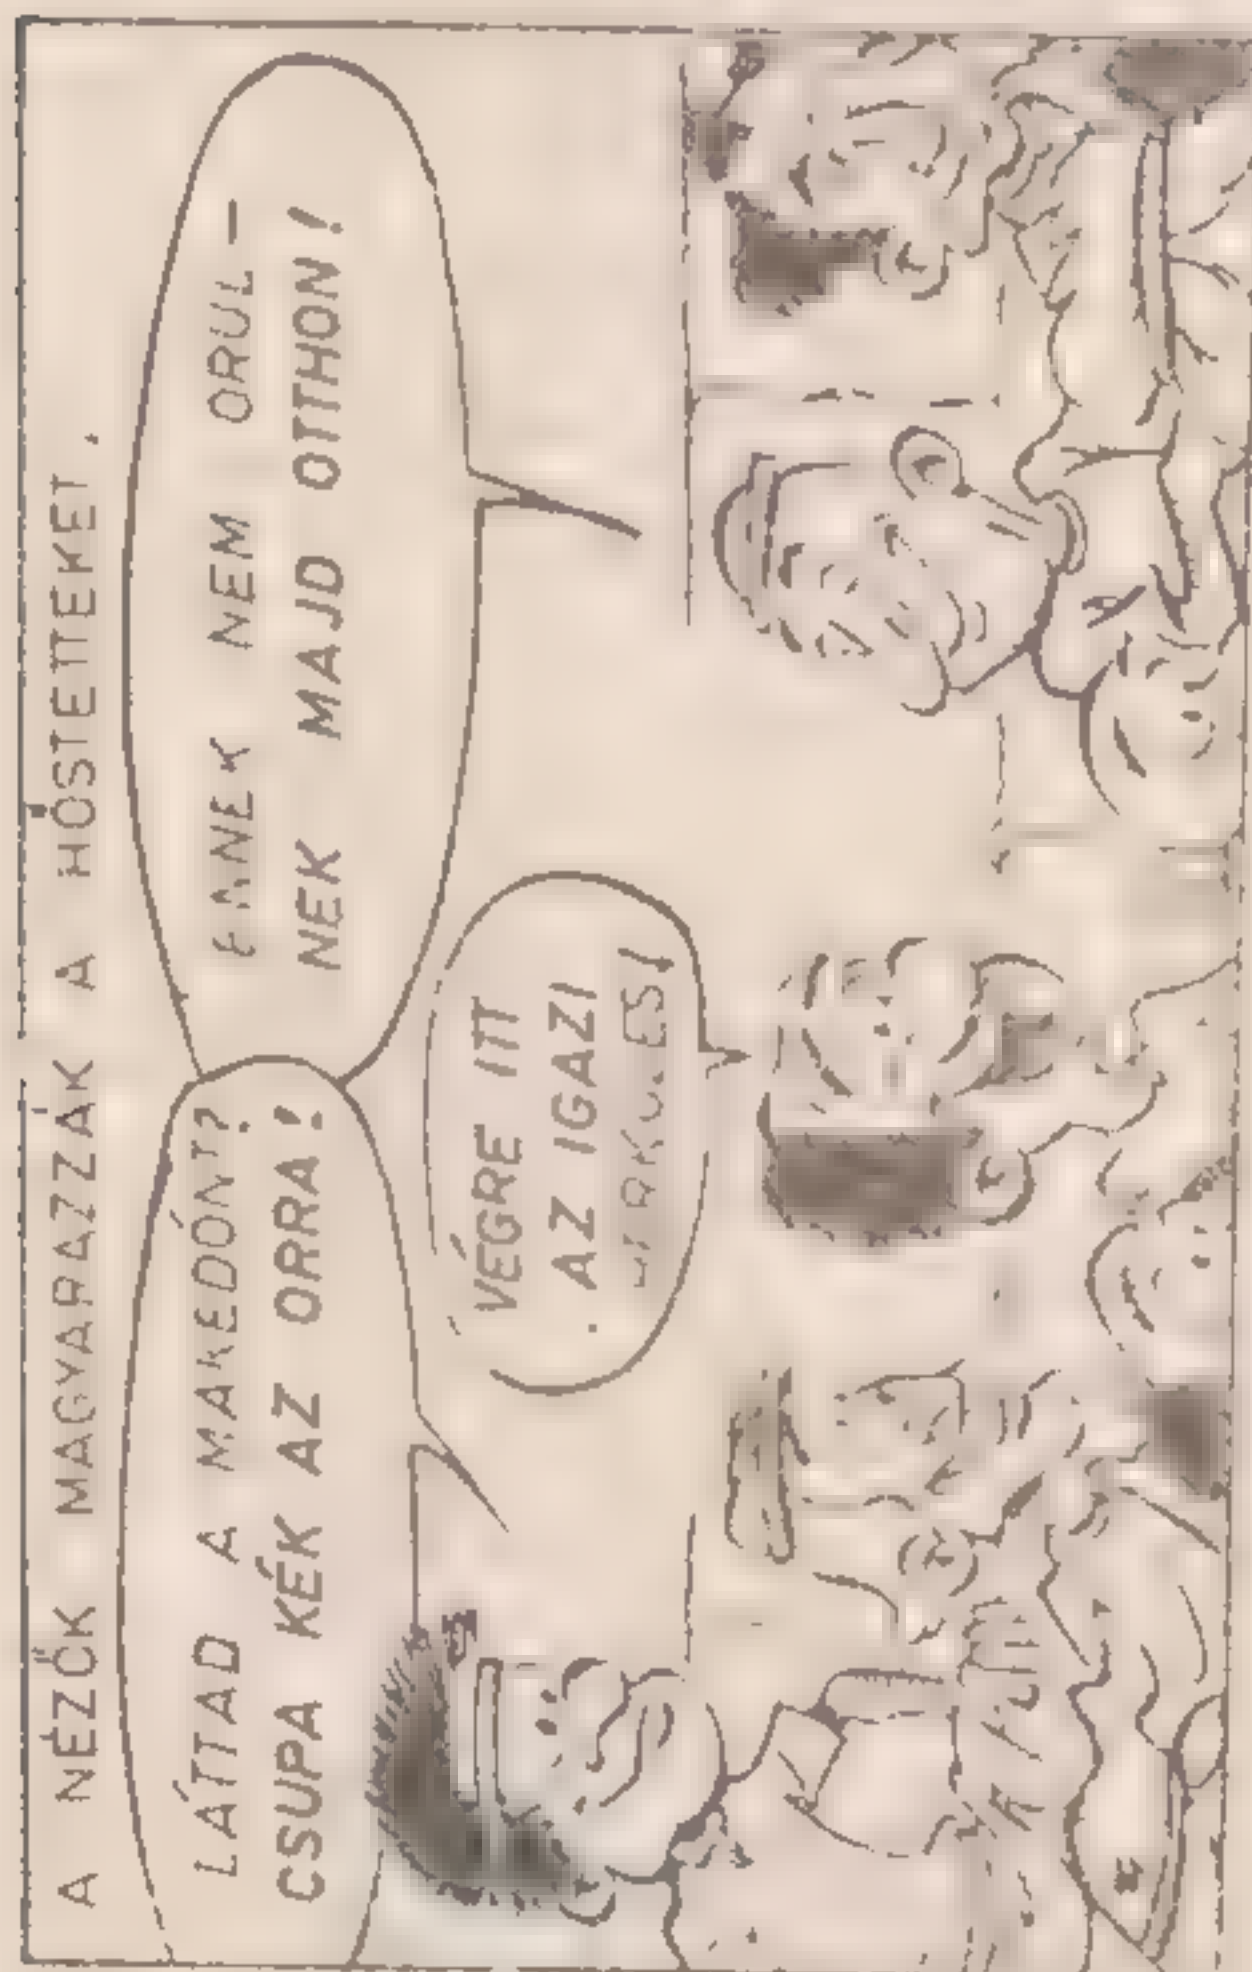 A NÉZŐK MAGYARÁZZÁK A HŐSTETTEKET.
LÁTTAD A MAKEDÓNT?
CSUPA KÉK AZ ORRA!
ENNEK NEM ÖRÜL-
NEK MAJD OTTHON!
VÉGRE ITT
AZ IGAZI